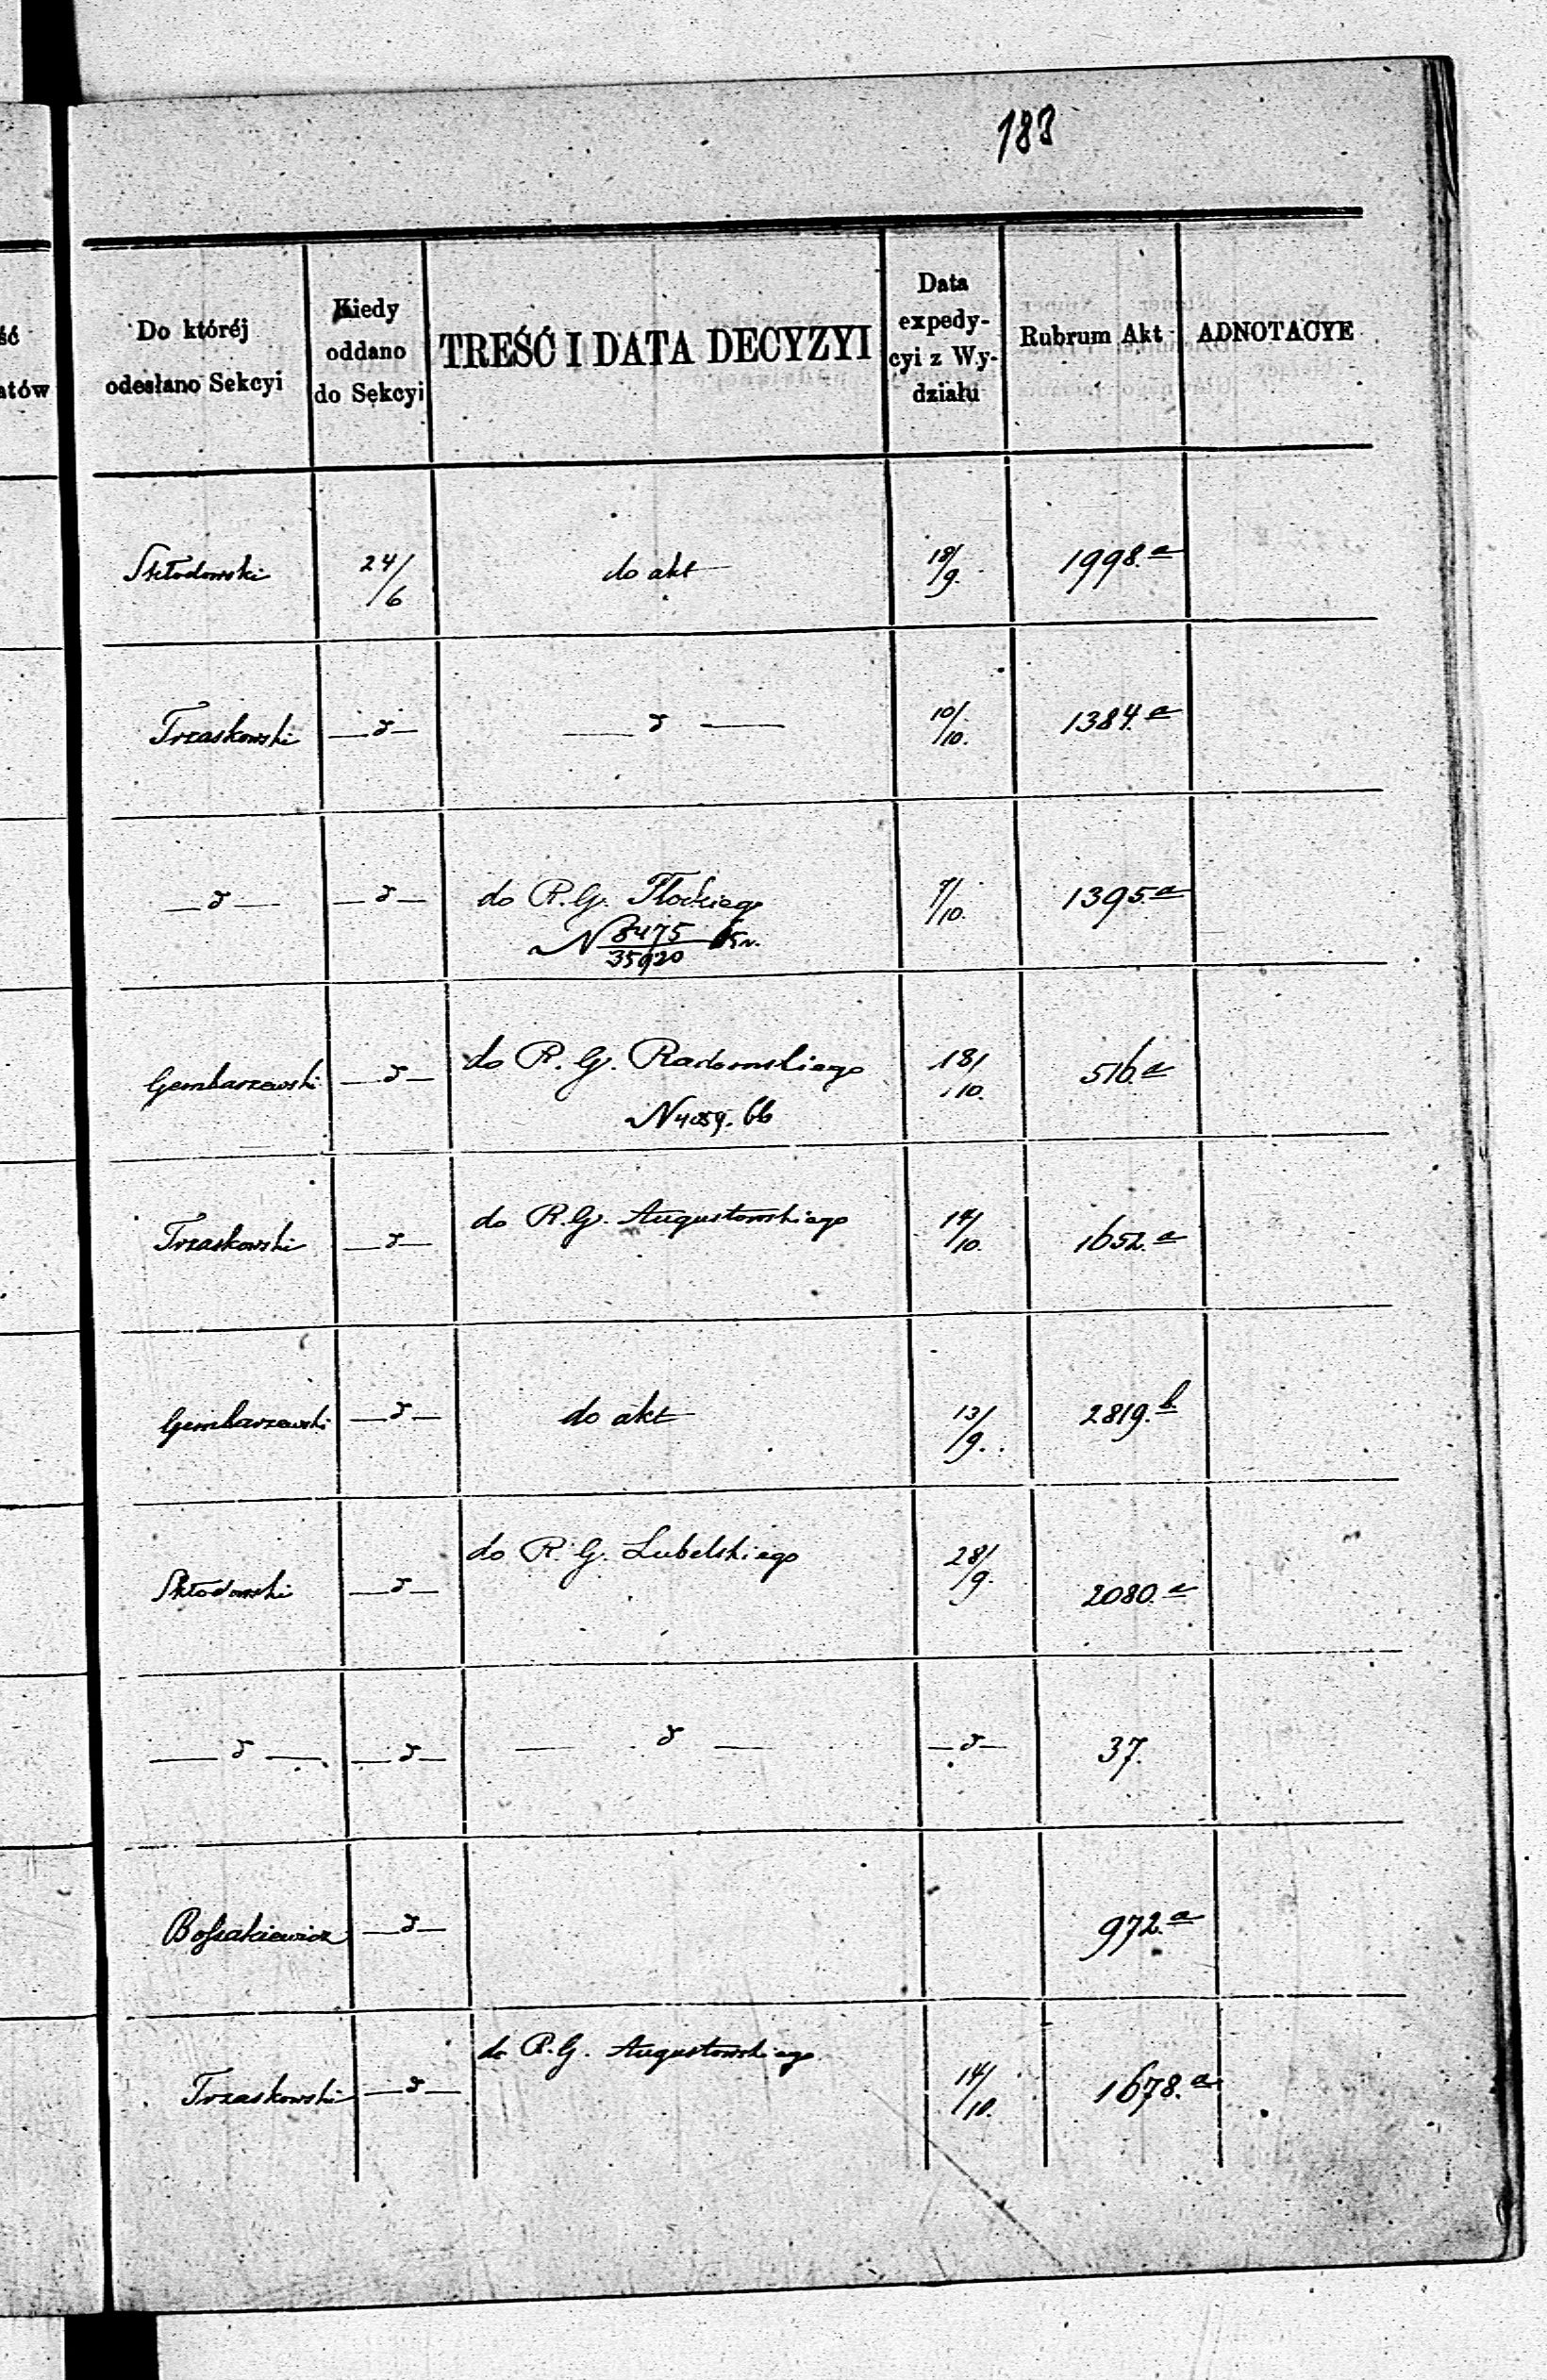 183
ść
atów
Do któréj
odesłano Sekcyi
Kiedy
oddano
do Sekcyi
TREŚĆ I DATA DECYZYI
Data
expedy-
cyi z Wy-
działu
Rubrum Akt
ADNOTACYE
Skłodowski 24/6 do akt 18/9. 1998.a
Trzaskowski —d— — d — 10/10. 1384.a
—d— —d— do R.G. Płockiego 7/10. 1395.a
N 8475/35920
Gembarzewski —d— do R. G. Radomskiego 18/10. 516.a
N 4089. 66
Trzaskowski —d— do R.G. Augustowskiego 14/10. 1652.a
Gembarzewski —d— do akt 13/9. 2819.b
Skłodowski —d— do R. G. Lubelskiego 28/9. 2080.a
— d — —d— — d — —d— 37.
—d— 972.a
Trzaskowski —d— do R.G. Augustowskiego 14/10. 1678.a